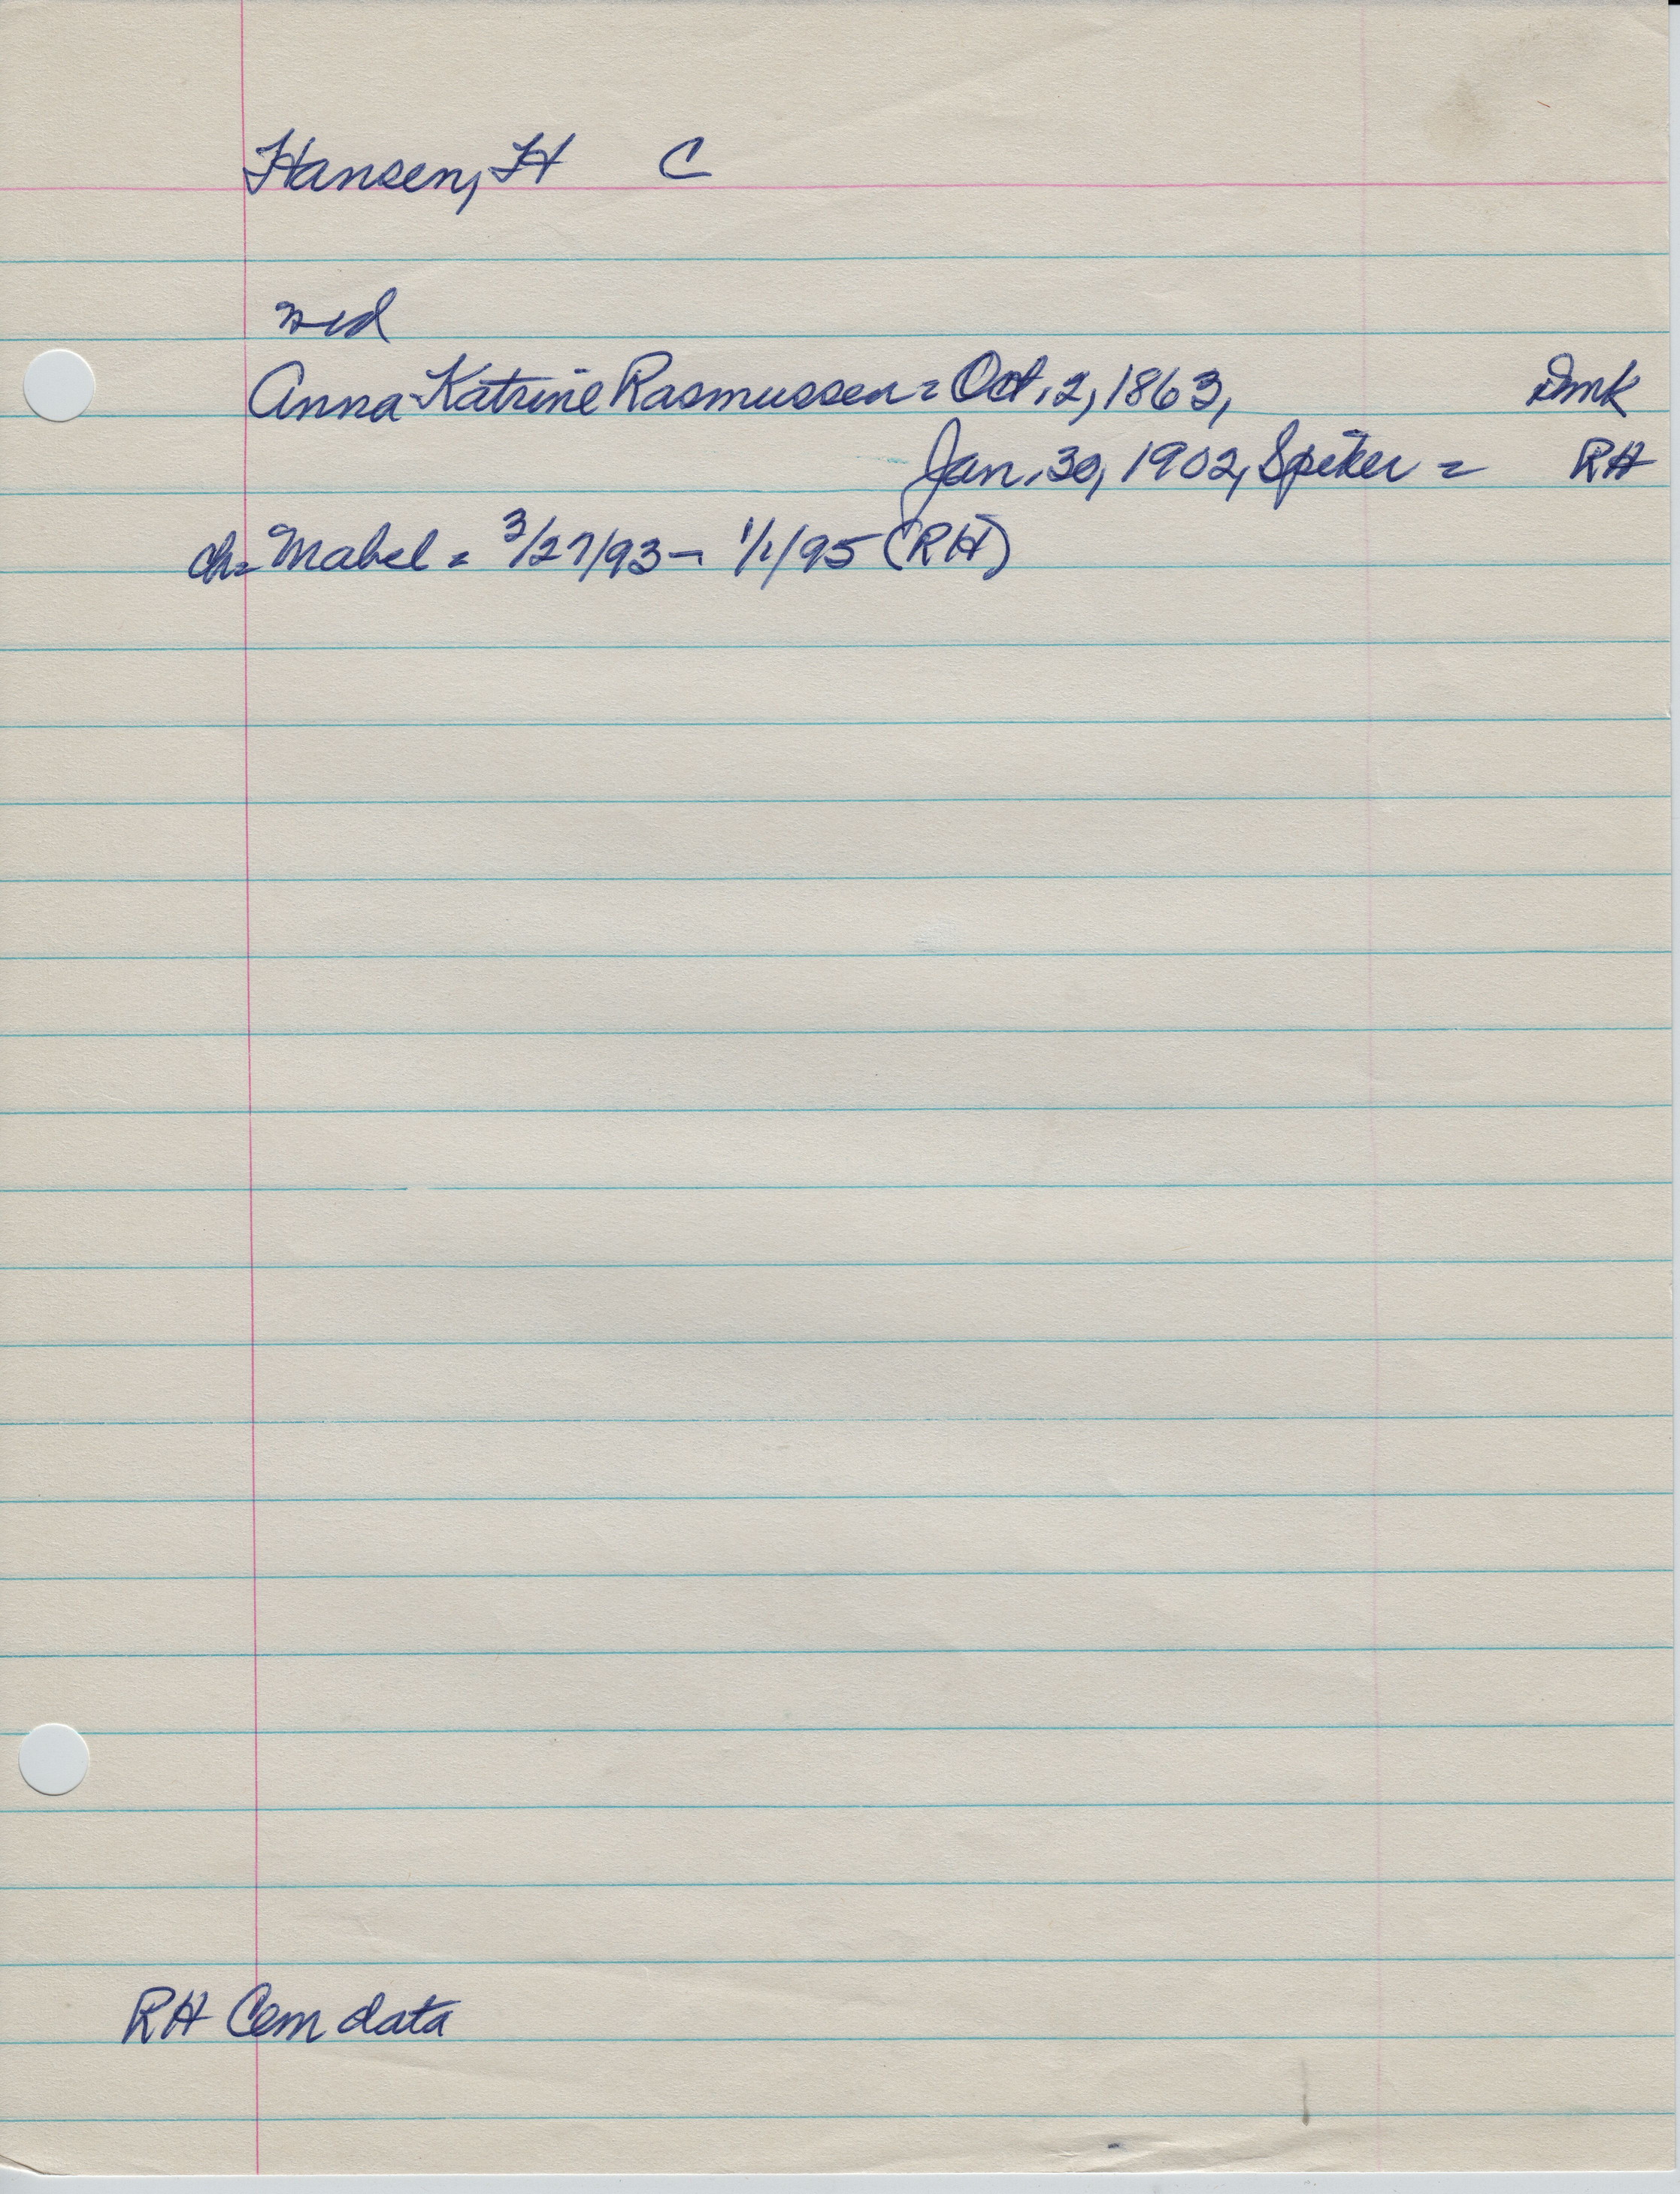 Hansen, H C
md
Anna Katrine Rasmussen = Oct. 2, 1863, Dmk
Jan. 30, 1902, Spiker = RH
ch = Mabel = 3/27/93 - 1/1/95 (RH)
RH Cem data